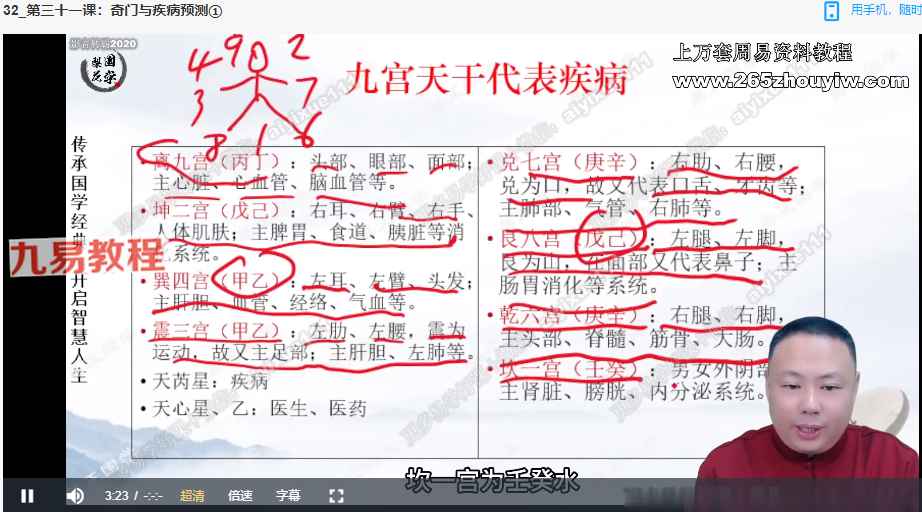 32_第三十一课：奇门与疾病预测①
用手机，随时
上万套周易资料教程
www.265zhouyiw.com
九宫天干代表疾病
4 9 2
3 7
8 1 6
离九宫（丙丁）：头部、眼部、面部；
主心脏、心血管、脑血管等。
坤二宫（戊己）：右耳、右臂、右手、
人体肌肤；主脾胃、食道、胰脏等消
化系统。
巽四宫（甲乙）：左耳、左臂、头发；
主肝胆、血管、经络、气血等。
震三宫（甲乙）：左肋、左腰，震为
运动，故又主足部；主肝胆、左肺等。
天芮星：疾病
天心星、乙：医生、医药
兑七宫（庚辛）：右肋、右腰，
兑为口，故又代表口舌、牙齿等；
主肺部、气管、右肺等。
艮八宫（戊己）：左腿、左脚，
艮为山，在面部又代表鼻子；主
肠胃消化等系统。
乾六宫（庚辛）：右腿、右脚，
主头部、脊髓、筋骨、大肠。
坎一宫（壬癸）：男女外阴部
主肾脏、膀胱、内分泌系统。
传承国学经典
开启智慧人生
九易教程
坎一宫为壬癸水
3:23 / -:-
超清
倍速
字幕